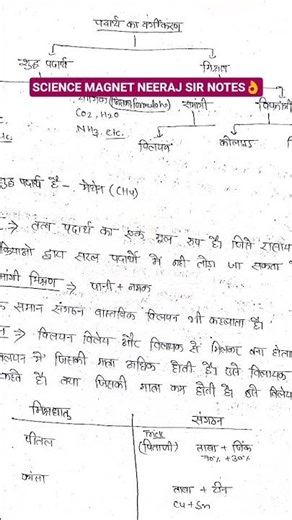 पदार्थ का वर्गीकरण
शुद्ध पदार्थ मिश्रण
SCIENCE MAGNET NEERAJ SIR NOTES👌
समांगी
CO2, H2O
NH3, etc.
विलयन कोलाइड
शुद्ध पदार्थ है - मेथेन (CH4)
तत्व पदार्थ का एक मूल रूप है। जिसे
द्वारा सरल पदार्थों में नहीं तोड़ा जा सकता
मिश्रण → पानी + नमक
समान संगठन वास्तविक विलयन भी कहलाता है।
विलयन विलेय और विलायक से मिलकर बना होता
में जिसकी मात्रा अधिक होती है। उसे विलायक
कहते है। तथा जिसकी मात्रा कम होती है। उसे विलेय
मिश्रधातु संगठन
पीतल Trick (पिताजी) तांबा + जिंक
70% + 30%
कांसा तांबा + टीन
Cu + Sn